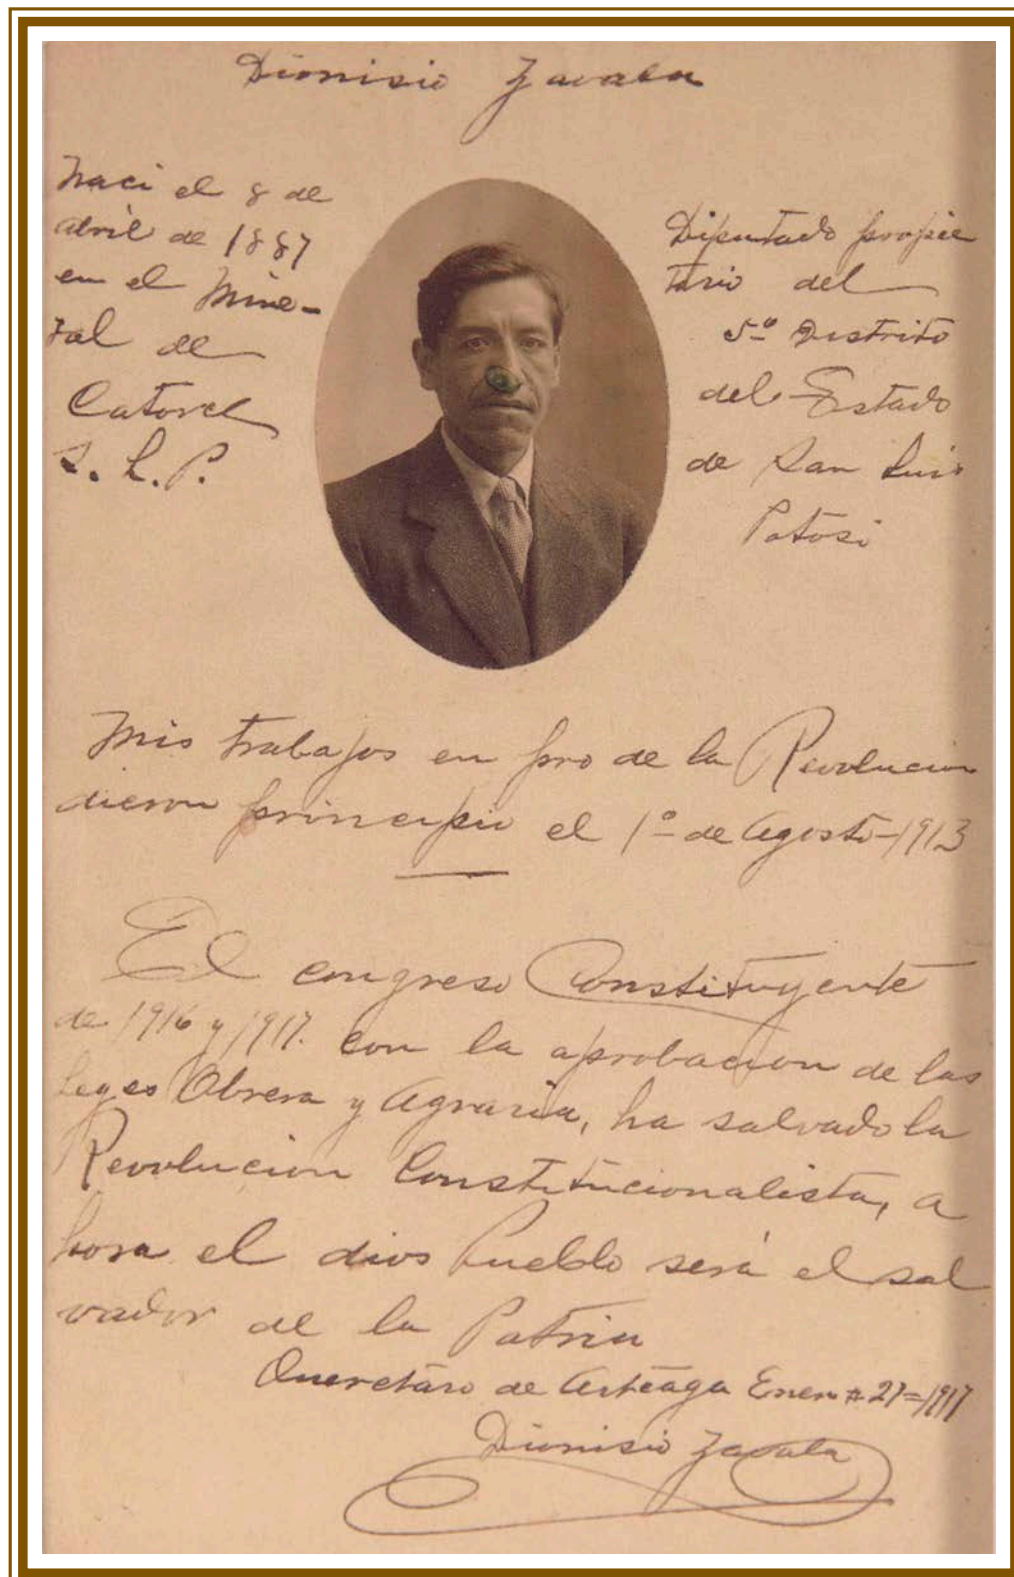 Dionisio Zavala
Naci el 8 de
abril de 1887
en el Mine-
ral de
Catorce
S. L. P.
Diputado propie
tario del
5º Distrito
del Estado
de San Luis
Potosi
Mis trabajos en pro de la Revolucion
dieron principio el 1º de Agosto-1913
El congreso Constituyente
de 1916 y 1917. con la aprobacion de las
Leyes Obrera y Agraria, ha salvado la
Revolucion Constitucionalista, a
hora el dios Pueblo será el sal
vador de la Patria
Queretaro de Arteaga Enero # 27=1917
Dionisio Zavala